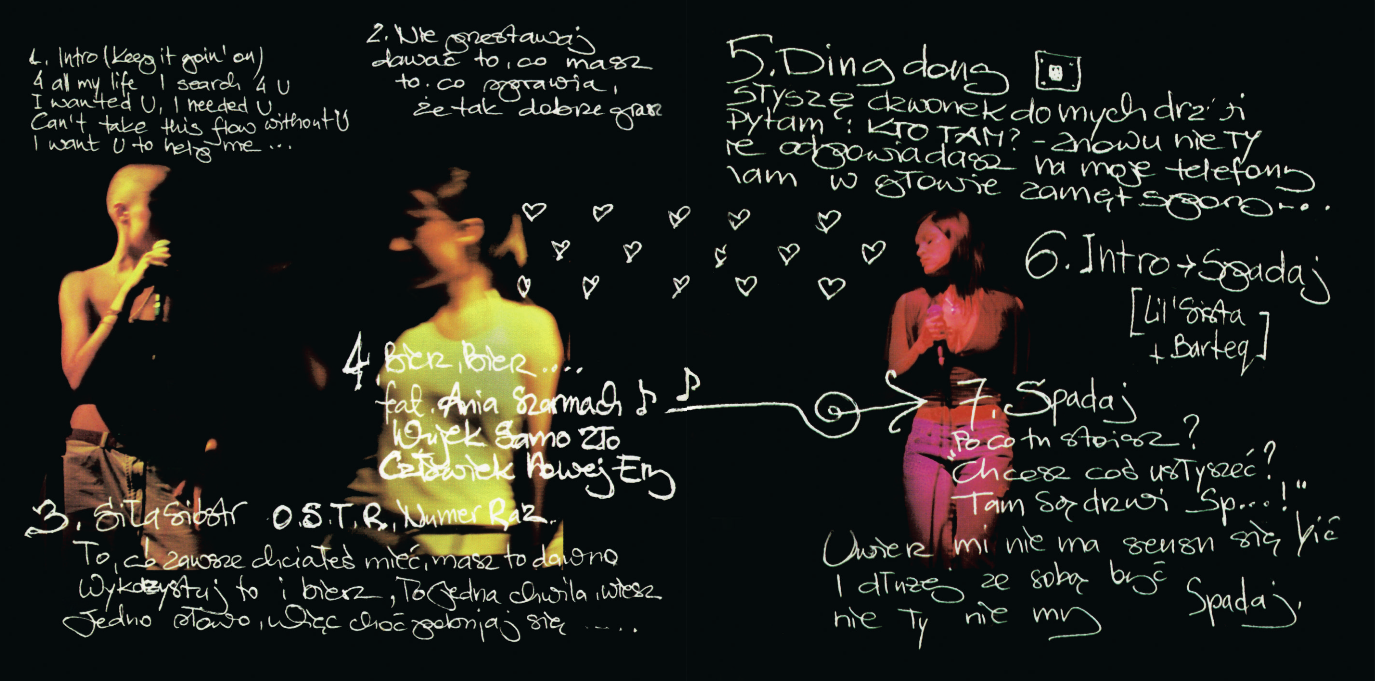 1. Intro (Keep it goin' on)
4 all my life I search 4 U
I wanted U, I needed U
Can't take this flow without U
I want U to help me...
2. Nie przestawaj
dawać to, co masz
to. co sprawia,
że tak dobrze grasz
3. Siła Sióstr O.S.T.R., Numer Raz..
To, co zawsze chciałeś mieć, masz to dawno
Wykorzystuj to i bierz, To jedna chwila, wiesz
Jedno słowo, więc choć się .....
4. Bierz, Bierz ....
feat. Ania Szarmach
Wujek Samo Zło
Człowiek Nowej Ery
5. Ding dong
Słyszę dzwonek do mych
Pytam: KTO TAM? - znowu nie TY
odpowiadasz na moje telefony
w głowie zamęt
6. Intro → Spadaj
[Lil' Sista
+ Barteq]
7. Spadaj
„Po co tu stoisz?
Chcesz coś usłyszeć?
Tam są drzwi Sp...!"
Uwierz mi nie ma sensu się
I dłużej ze sobą być
nie Ty nie my
Spadaj,